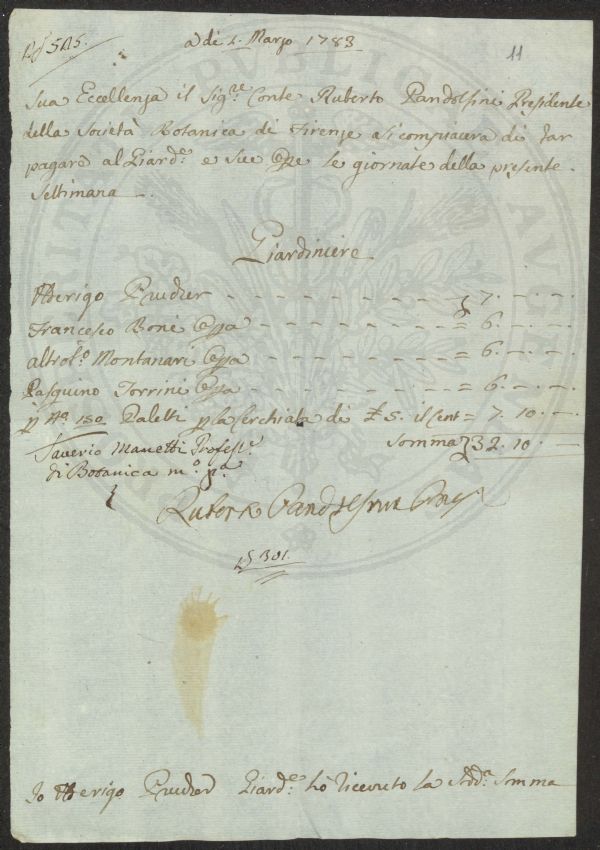 a dì 1. Marzo 1783
11
Sua Eccellenza il Sig.re Conte Ruberto Pandolfini Presidente
della Società Botanica di Firenze si compiacerà di far
pagare al Giard.e e sue Opre le giornate della presente
Settimana
Giardiniere
Prucher - - - 7. - -
Francesco Boni Opra - - - = 6. - -
Montanari Opra - - - = 6. - -
Pasquino Torrini Opra - - - = 6. - -
p N.o 150 Paletti p la Cerchiata di £ 5. il Cent.= 7. 10. -
Saverio Manetti Profess.r Somma 32. 10. -
di Botanica m.o p.a
Ruberto Pandolfini Pres.
301.
Io Prucher Giard.e hò ricevuto la Sud.a Somma